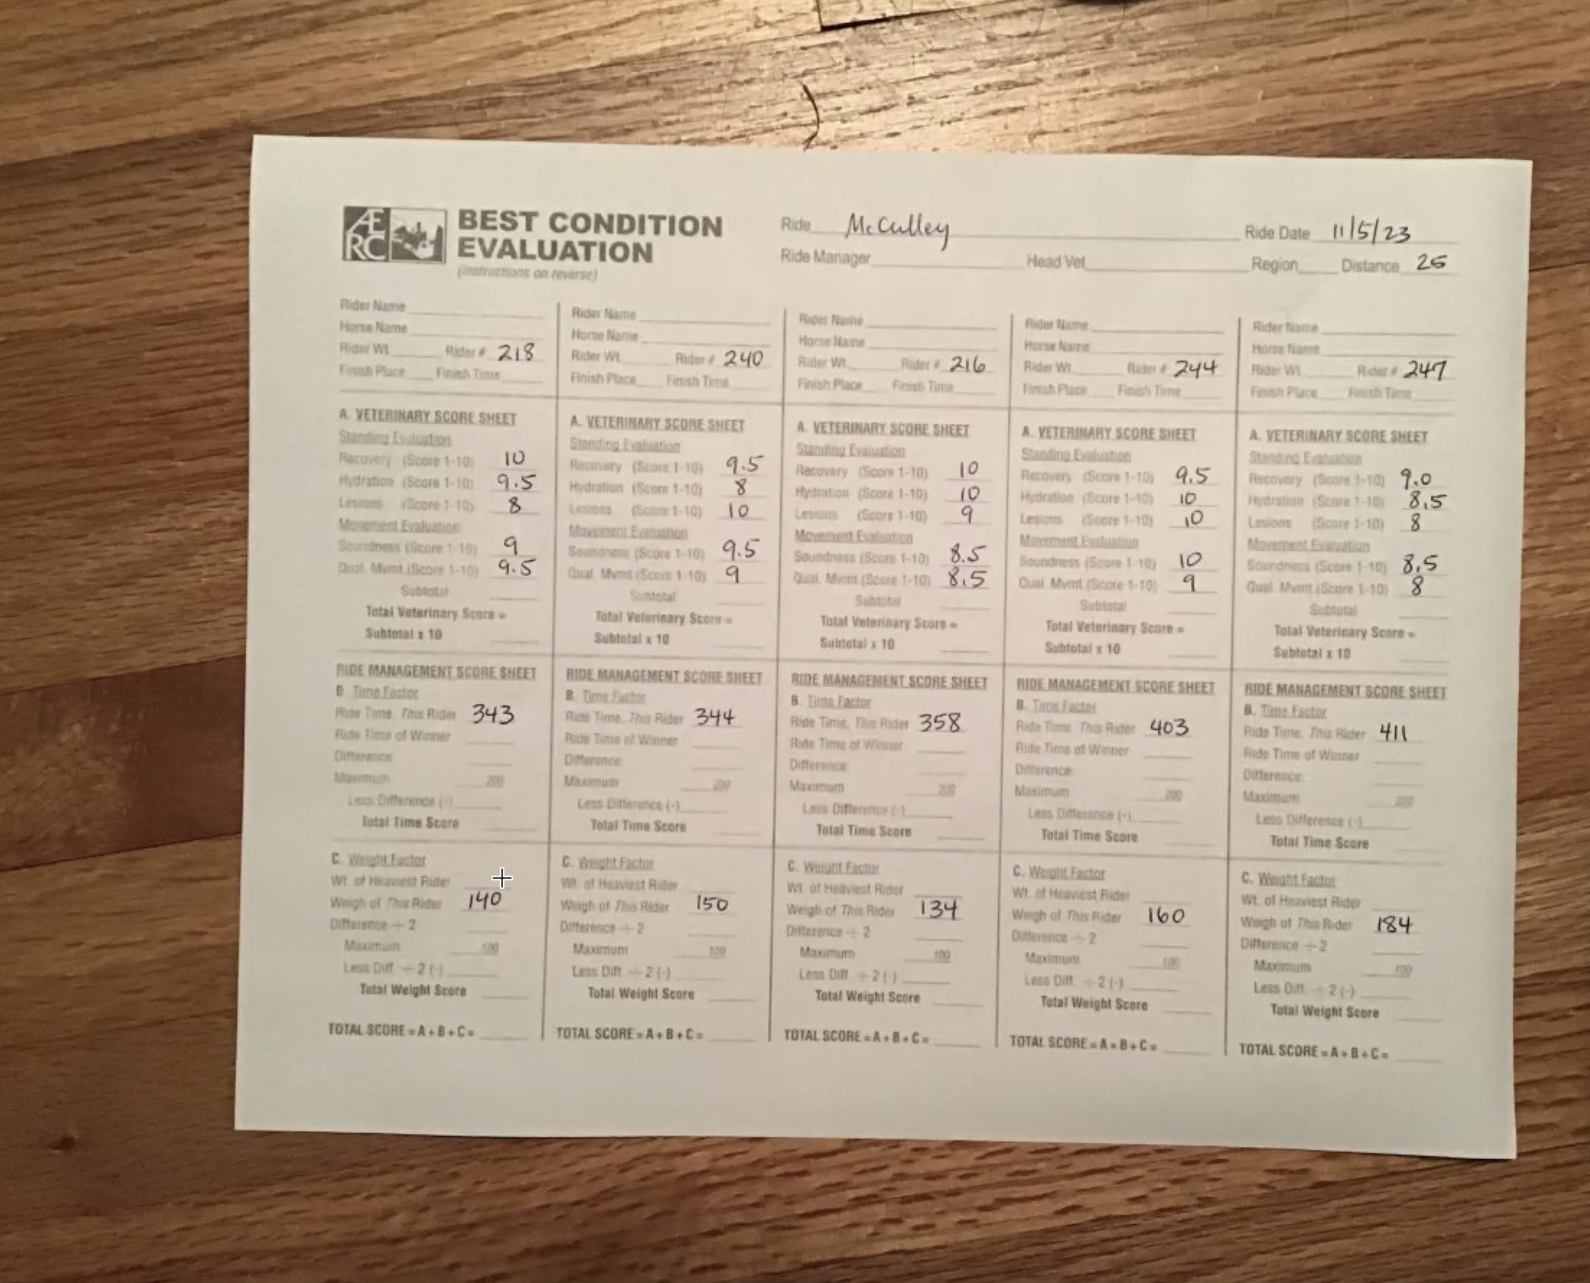 ÆRC
BEST CONDITION
EVALUATION
(instructions on reverse)
Ride McCulley
Ride Date 11/5/23
Ride Manager
Head Vet
Region
Distance 25
Rider Name
Horse Name
Rider Wt. Rider # 218
Finish Place Finish Time
A. VETERINARY SCORE SHEET
Standing Evaluation
Recovery (Score 1-10) 10
Hydration (Score 1-10) 9.5
Lesions (Score 1-10) 8
Movement Evaluation
Soundness (Score 1-10) 9
Qual. Mvmt (Score 1-10) 9.5
Subtotal
Total Veterinary Score =
Subtotal x 10
RIDE MANAGEMENT SCORE SHEET
B. Time Factor
Ride Time, This Rider 343
Ride Time of Winner
Difference:
Maximum 200
Less Difference (-)
Total Time Score
C. Weight Factor
Wt. of Heaviest Rider
Weigh of This Rider 140
Difference ÷ 2
Maximum 100
Less Diff. ÷ 2 (-)
Total Weight Score
TOTAL SCORE = A + B + C =
Rider Name
Horse Name
Rider Wt. Rider # 240
Finish Place Finish Time
A. VETERINARY SCORE SHEET
Standing Evaluation
Recovery (Score 1-10) 9.5
Hydration (Score 1-10) 8
Lesions (Score 1-10) 10
Movement Evaluation
Soundness (Score 1-10) 9.5
Qual. Mvmt (Score 1-10) 9
Subtotal
Total Veterinary Score =
Subtotal x 10
RIDE MANAGEMENT SCORE SHEET
B. Time Factor
Ride Time, This Rider 344
Ride Time of Winner
Difference:
Maximum 200
Less Difference (-)
Total Time Score
C. Weight Factor
Wt. of Heaviest Rider
Weigh of This Rider 150
Difference ÷ 2
Maximum 100
Less Diff. ÷ 2 (-)
Total Weight Score
TOTAL SCORE = A + B + C =
Rider Name
Horse Name
Rider Wt. Rider # 216
Finish Place Finish Time
A. VETERINARY SCORE SHEET
Standing Evaluation
Recovery (Score 1-10) 10
Hydration (Score 1-10) 10
Lesions (Score 1-10) 9
Movement Evaluation
Soundness (Score 1-10) 8.5
Qual. Mvmt (Score 1-10) 8.5
Subtotal
Total Veterinary Score =
Subtotal x 10
RIDE MANAGEMENT SCORE SHEET
B. Time Factor
Ride Time, This Rider 358
Ride Time of Winner
Difference:
Maximum 200
Less Difference (-)
Total Time Score
C. Weight Factor
Wt. of Heaviest Rider
Weigh of This Rider 134
Difference ÷ 2
Maximum 100
Less Diff. ÷ 2 (-)
Total Weight Score
TOTAL SCORE = A + B + C =
Rider Name
Horse Name
Rider Wt. Rider # 244
Finish Place Finish Time
A. VETERINARY SCORE SHEET
Standing Evaluation
Recovery (Score 1-10) 9.5
Hydration (Score 1-10) 10
Lesions (Score 1-10) 10
Movement Evaluation
Soundness (Score 1-10) 10
Qual. Mvmt (Score 1-10) 9
Subtotal
Total Veterinary Score =
Subtotal x 10
RIDE MANAGEMENT SCORE SHEET
B. Time Factor
Ride Time, This Rider 403
Ride Time of Winner
Difference:
Maximum 200
Less Difference (-)
Total Time Score
C. Weight Factor
Wt. of Heaviest Rider
Weigh of This Rider 160
Difference ÷ 2
Maximum 100
Less Diff. ÷ 2 (-)
Total Weight Score
TOTAL SCORE = A + B + C =
Rider Name
Horse Name
Rider Wt. Rider # 247
Finish Place Finish Time
A. VETERINARY SCORE SHEET
Standing Evaluation
Recovery (Score 1-10) 9.0
Hydration (Score 1-10) 8.5
Lesions (Score 1-10) 8
Movement Evaluation
Soundness (Score 1-10) 8.5
Qual. Mvmt (Score 1-10) 8
Subtotal
Total Veterinary Score =
Subtotal x 10
RIDE MANAGEMENT SCORE SHEET
B. Time Factor
Ride Time, This Rider 411
Ride Time of Winner
Difference:
Maximum 200
Less Difference (-)
Total Time Score
C. Weight Factor
Wt. of Heaviest Rider
Weigh of This Rider 184
Difference ÷ 2
Maximum 100
Less Diff. ÷ 2 (-)
Total Weight Score
TOTAL SCORE = A + B + C =